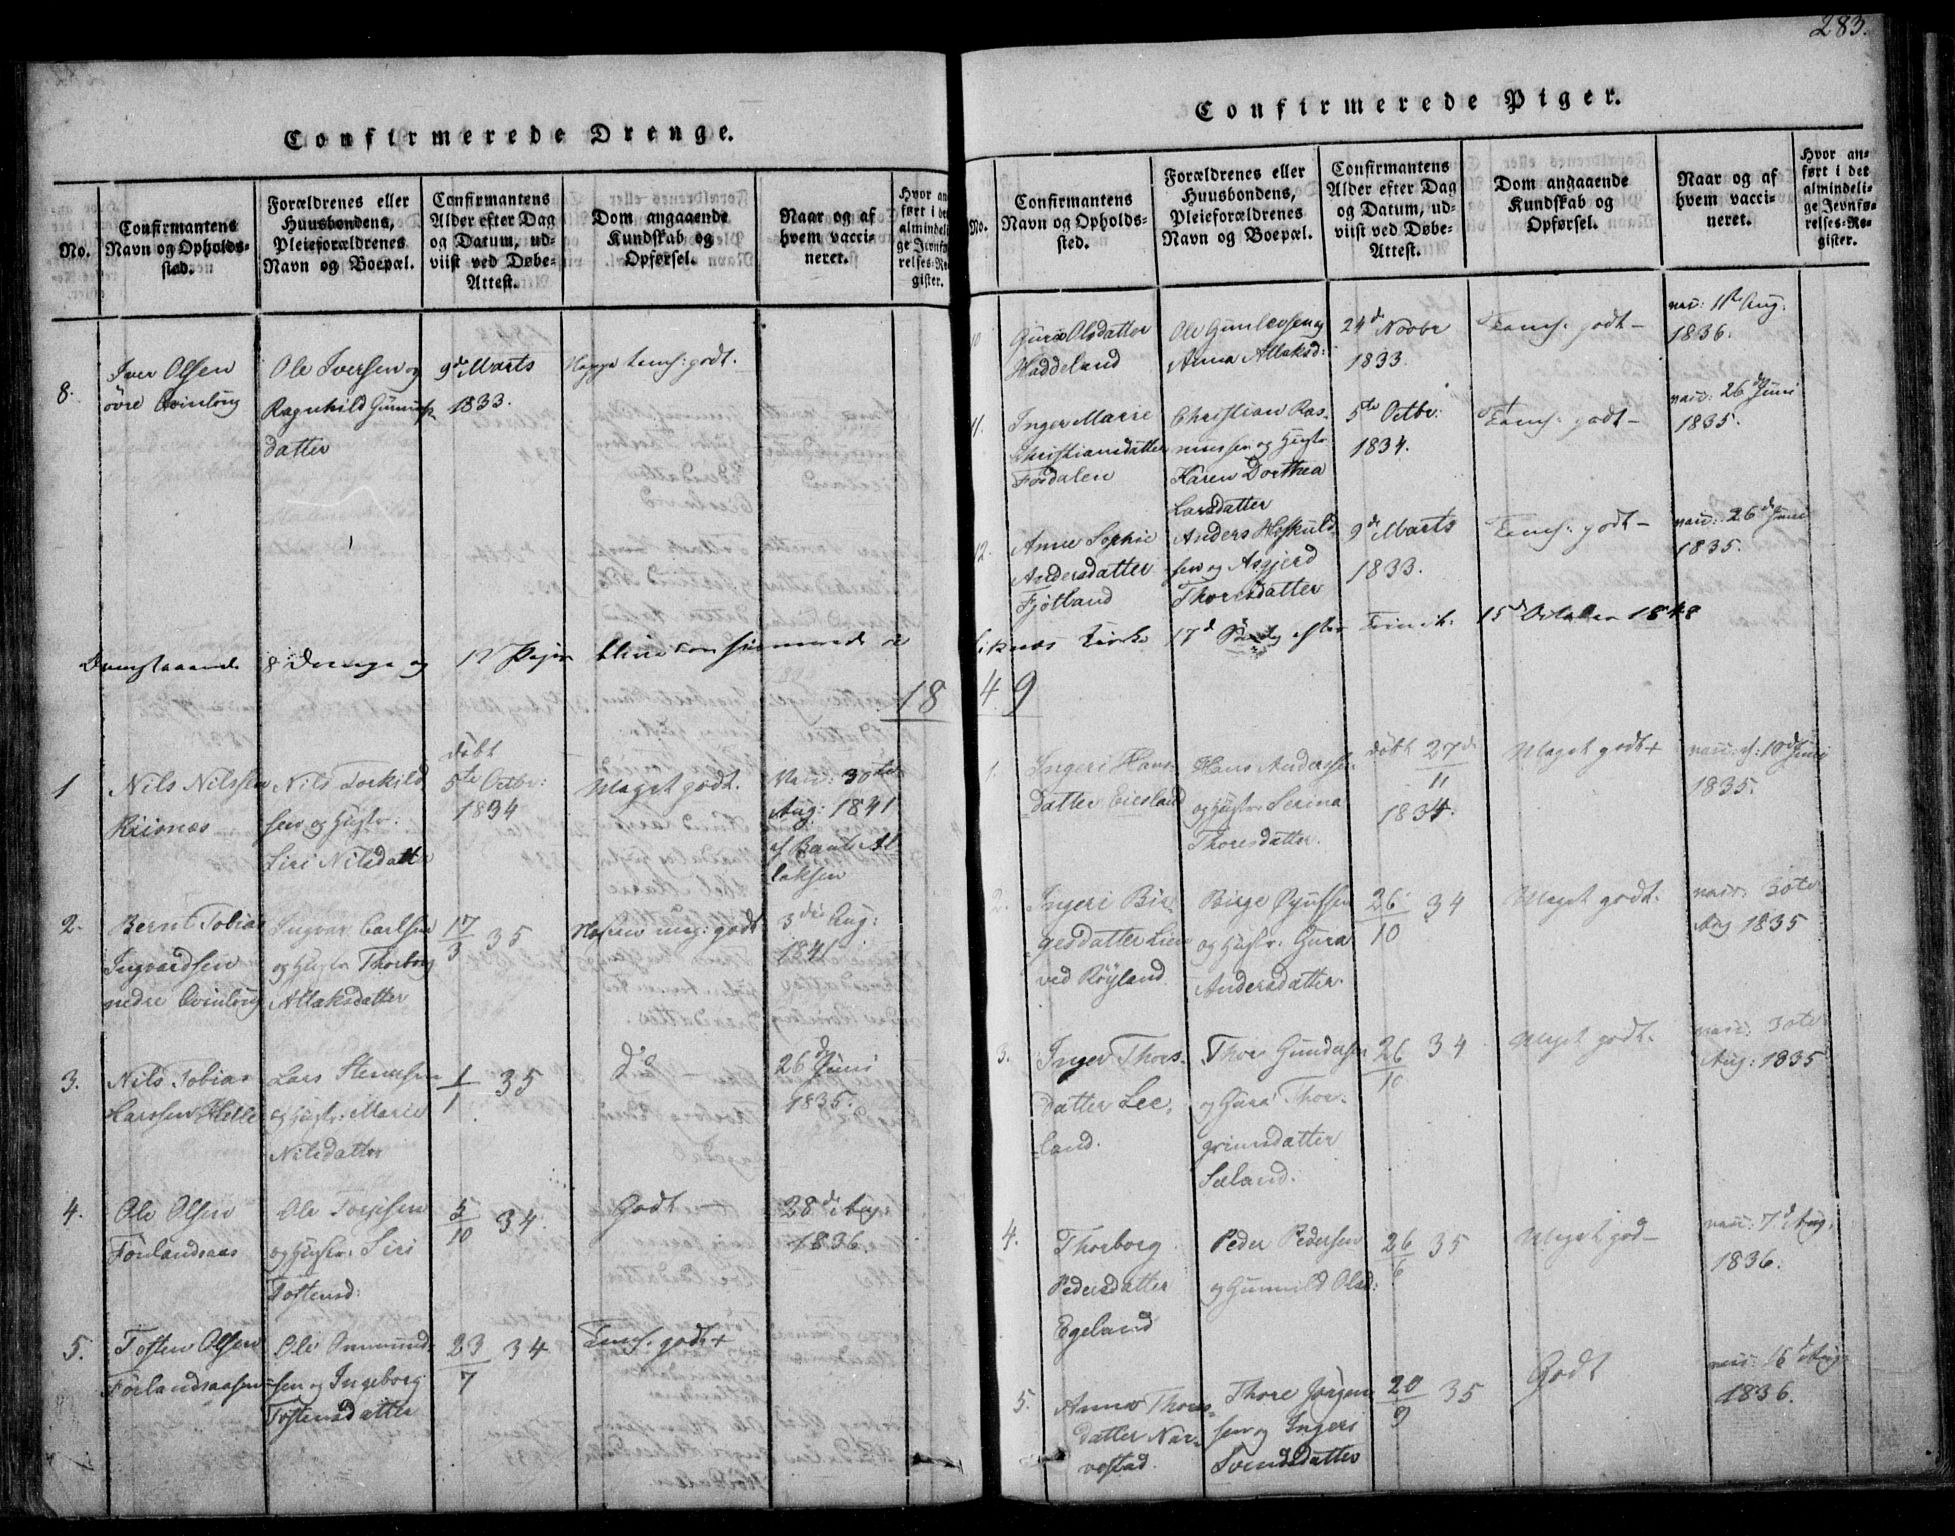 283.
Confirmerede Drenge.
No.
Confirmantens
Navn og Opholds-
sted.
Forældrenes eller
Huusbondens,
Pleieforældrenes
Navn og Boepæl.
Confirmantens
Alder efter Dag
og Datum, ud-
viist ved Døbe-
Attest.
Dom angaaende
Kundskab og
Opførsel.
Naar og af
hvem vacci-
neret.
Hvor an-
ført i det
almindeli-
ge Jevnfø-
relses-Re-
gister.
8.
Iver Olsen
øvre Qvinlog
Ole Iversen og
Ragnhild
datter
9de Marts
1833.
temf: godt.
Ovenstaaende 8 Drenge og 12 Piger bleve confirmerede i
18
1
Nils Nilssen
Riisnæs
Nils Torkild
sen og Hustr:
Siri Nilsdatt
døbt
5te Octbr:
1834
Meget godt.
Vacc: 30te
Aug: 1841
af Bent At
laksen
2.
Bernt Tobias
Ingvardsen
nedre Qvinlog
Ingvar Carlsen
og Hustr Thorborg
Atlaksdatter
17/3 35
meg: godt
3die Aug:
1841
3.
Nils Tobias
Larssen Helle
Lars Stensen
og Hustr: Marie
Nilsdatter
1/1 35
do
26de Juni
1835.
4.
Ole Olsen
Førlandsaas
Ole Torjesen
og Hustr: Siri
Tostensd:
5/10 34.
Godt
28de Aug
1836.
5.
Tosten Olsen
Førlandsaasen
Ole Ommund-
sen og Ingeborg
Tostensdatter
23/7 34
Temf: godt +
Confirmerede Piger.
No.
Confirmantens
Navn og Opholds-
sted.
Forældrenes eller
Huusbondens,
Pleieforældrenes
Navn og Boepæl.
Confirmantens
Alder efter Dag
og Datum, ud-
viist ved Døbe-
Attest.
Dom angaaende
Kundskab og
Opførsel.
Naar og af
hvem vacci-
neret.
Hvor an-
ført i det
almindeli-
ge Jevnfø-
relses-Re-
gister.
10
Guro Olsdatter
Haddeland
Ole Gunlevsen og
Anna Atlaksd:
24de Novbr
1833.
Temf: godt -
vacc: 11te Aug:
1836.
11.
Inger Marie
Christiansdatter
Fosdalen
Christian Ras-
mussen og Hustr
Karen Dorthea
Larsdatter
5te Octbr:
1834.
Temf: godt -
vacc: 26de Juni
1835.
12.
Anne Sophie
Andersdatter
Fjotland
Anders Høskuld
sen og Asgjerd
Thoresdatter
9de Marts
1833.
Temf: godt -
vacc: 26de Juni
1835.
Liknæs Kirke 17de Søndag efter Trinit: 15de October 1848
49
1.
Ingeri Hans-
datter Eiesland
Hans Anderssen
og Hustr: Serina
Thoresdatter.
døbt 27de/11
1834.
Meget godt +
vacc: d: 10de Juni
1835.
2.
Ingeri Bir-
gesdatter Lien
ved Røyland
Birge
og Hustr: Gura
Andersdatter.
26/10 34
Meget godt.
vacc: 30te
Aug 1835
3.
Inger Thors-
datter Lee-
land.
Thor Gundersen
og Gura Thor-
grimsdatter
Sæland.
26/10 34
Meget godt.
vacc: 30te
Aug: 1835
4.
Thorborg
Pedersdatter
Egeland
Peder Pedersen
og Gunnild Olsd:
26/6 35
Meget god-
vacc: 7de Aug:
1836.
5.
Anne Thores-
datter Nar-
vestad.
Thore Jørgen
sen og Ingeri
Svendsdatter
20/9 35
Godt
vacc: 16de Aug
1836.